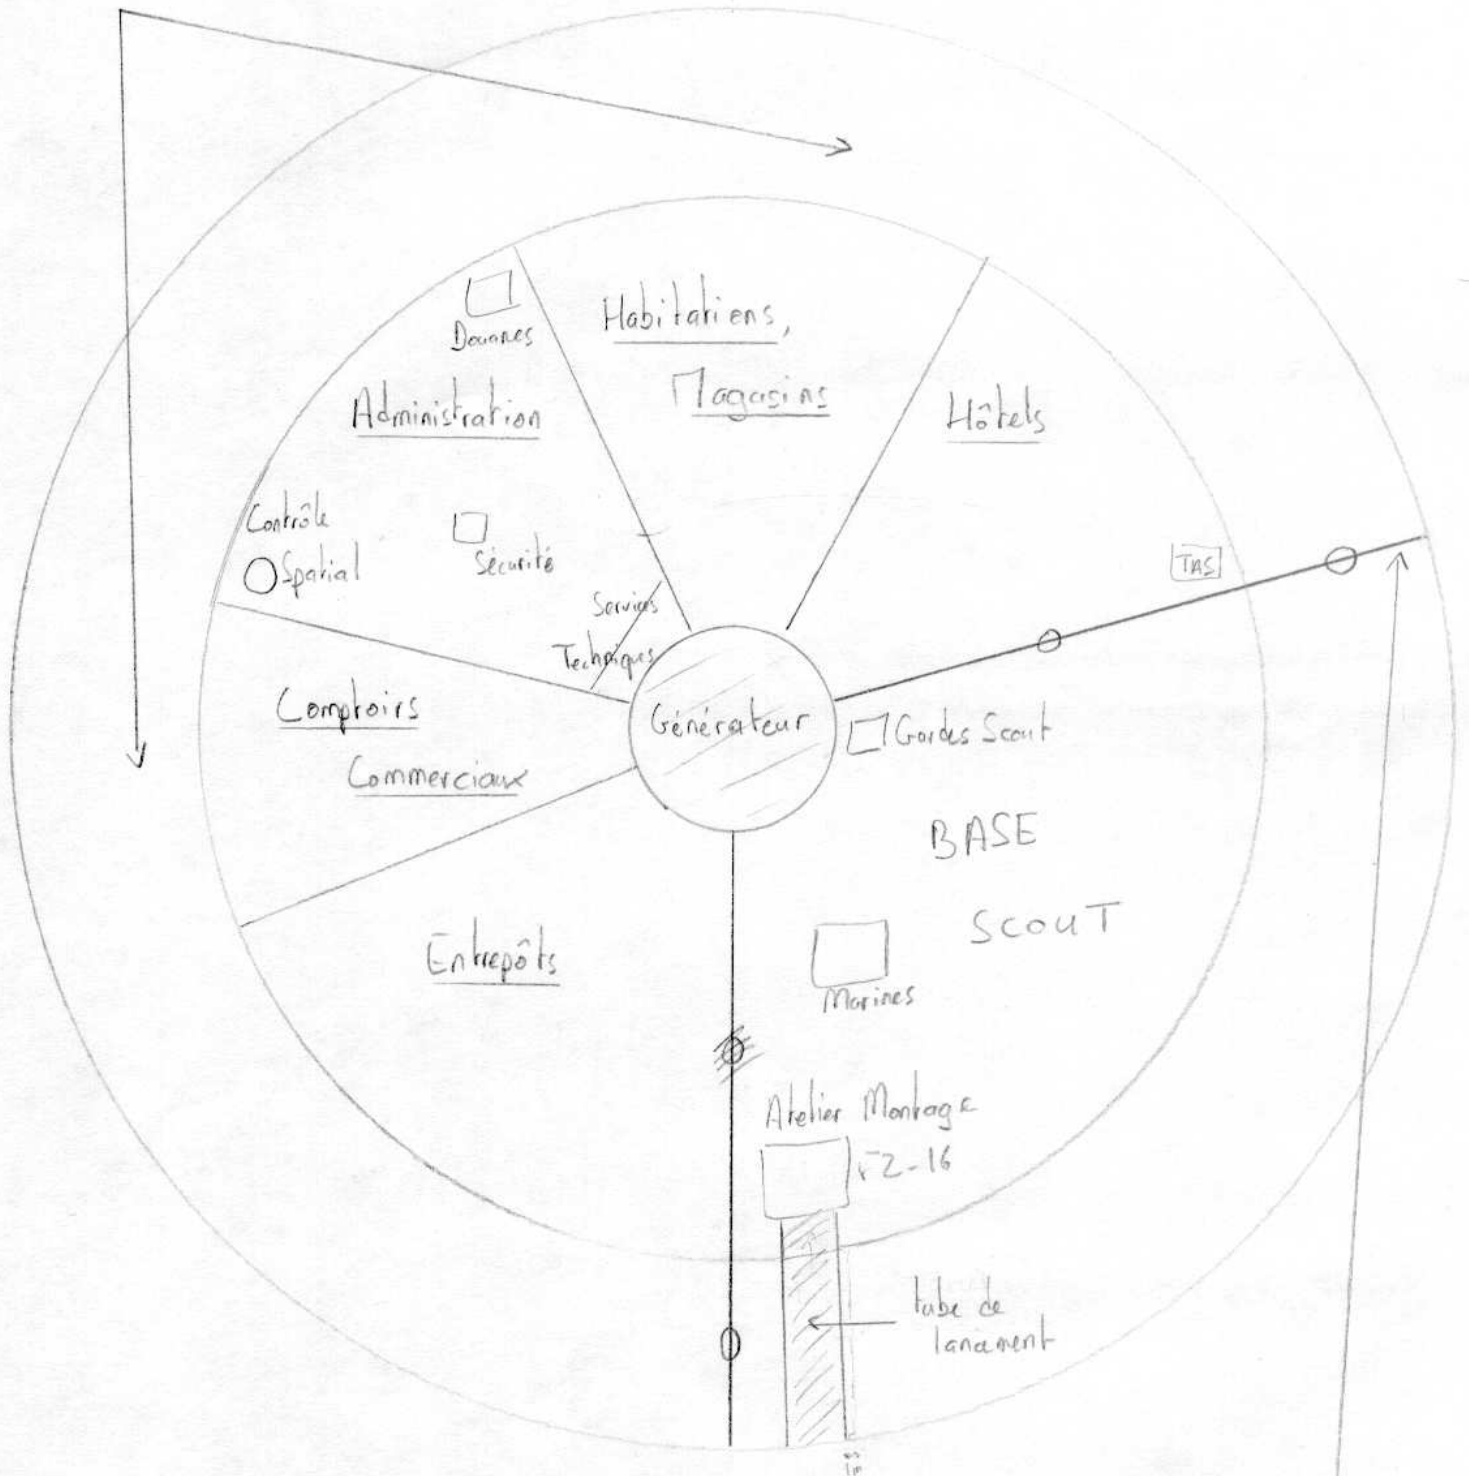 Douanes
Habitations,
Magasins
Administration
Hôtels
Contrôle
Spatial
Sécurité
TAS
Services
Techniques
Comptoirs
Commerciaux
Générateur
Gardes Scout
BASE
SCOUT
Entrepôts
Marines
Atelier Montage
FZ-16
tube de
lancement